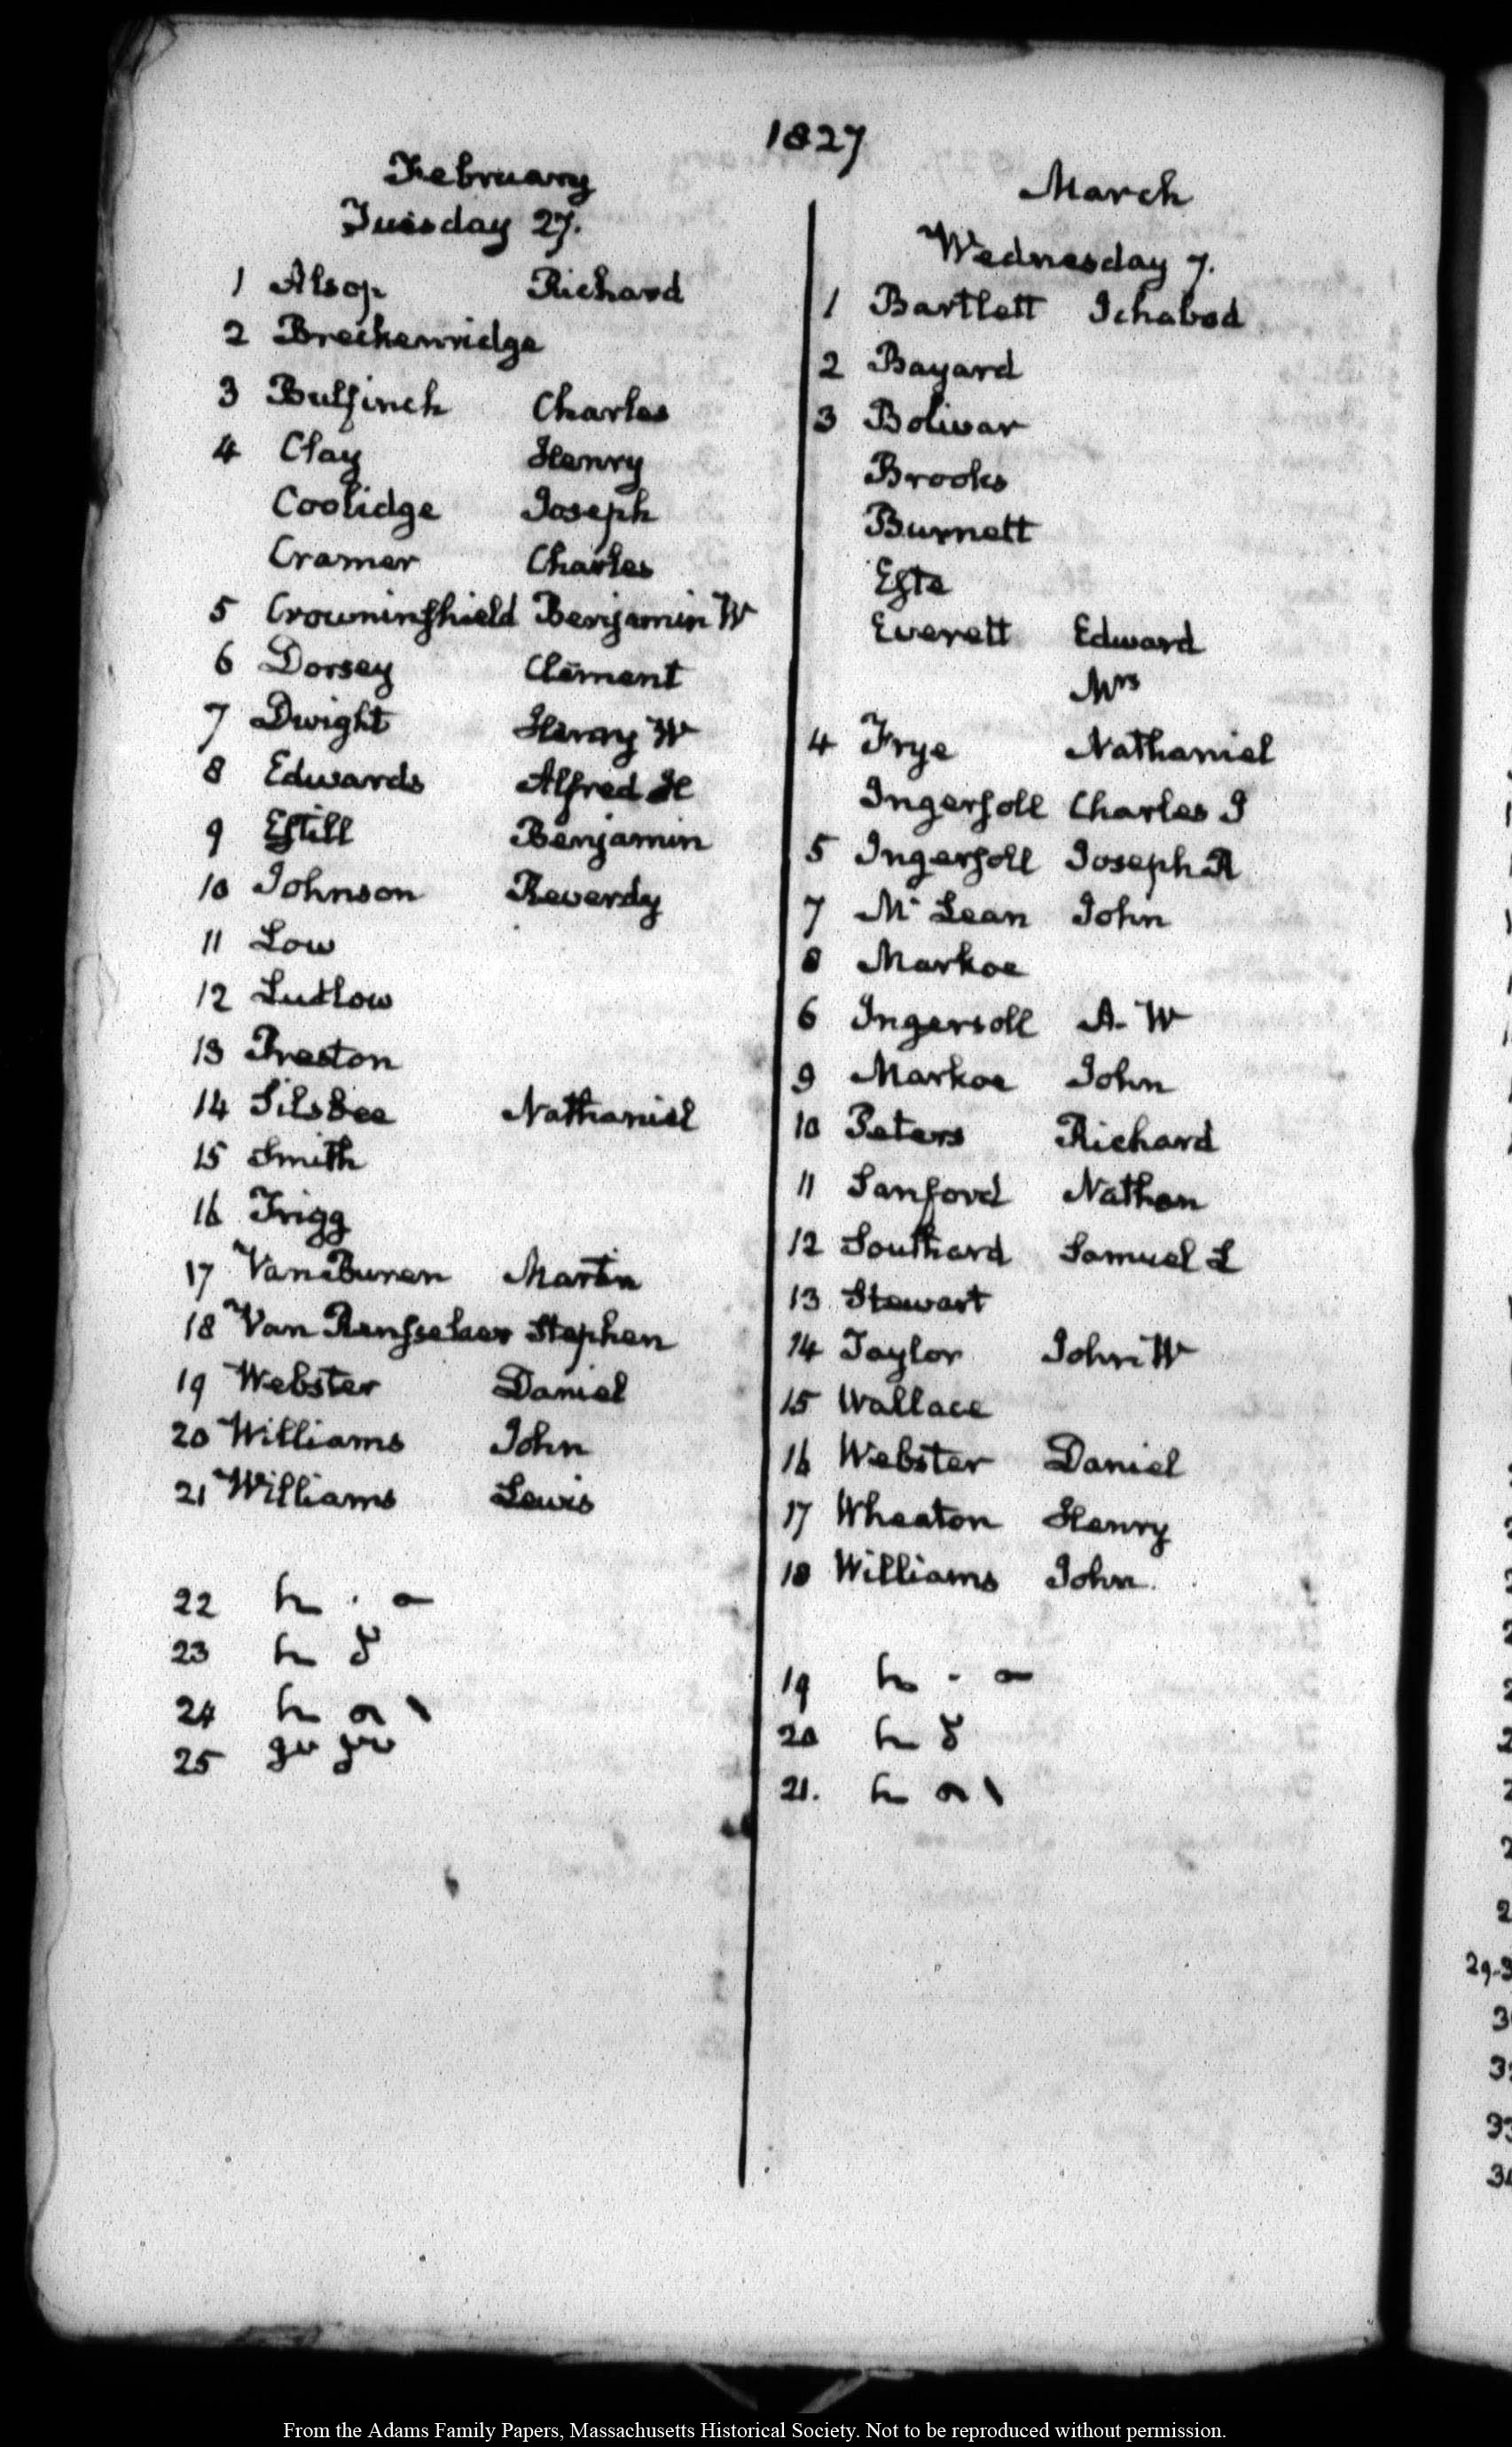 1827
February
Tuesday 27.
1 Alsop Richard
2 Breckenridge
3 Bulfinch Charles
4 Clay Henry
Coolidge Joseph
Cramer Charles
5 Crowninſhield Benjamin W
6 Dorsey Clement
7 Dwight Henry W
8 Edwards Alfred H
9 Eſtill Benjamin
10 Johnson Reverdy
11 Low
12 Ludlow
13 Preston
14 Silsbee Nathaniel
15 Smith
16 Trigg
17 Van Buren Martin
18 Van Renſselaer Stephen
19 Webster Daniel
20 Williams John
21 Williams Lewis
22
23
24
25
March
Wednesday 7.
1 Bartlett Ichabod
2 Bayard
3 Bolivar
Brooks
Burnett
Eſte
Everett Edward
Mrs
4 Frye Nathaniel
Ingerſoll Charles J
5 Ingerſoll Joseph R
7 Mc Lean John
8 Markoe
6 Ingersoll A- W
9 Markoe John
10 Peters Richard
11 Sanford Nathan
12 Southard Samuel L
13 Stewart
14 Taylor John W
15 Wallace
16 Webster Daniel
17 Wheaton Henry
18 Williams John.
19
20
21.
29-3
From the Adams Family Papers, Massachusetts Historical Society. Not to be reproduced without permission.